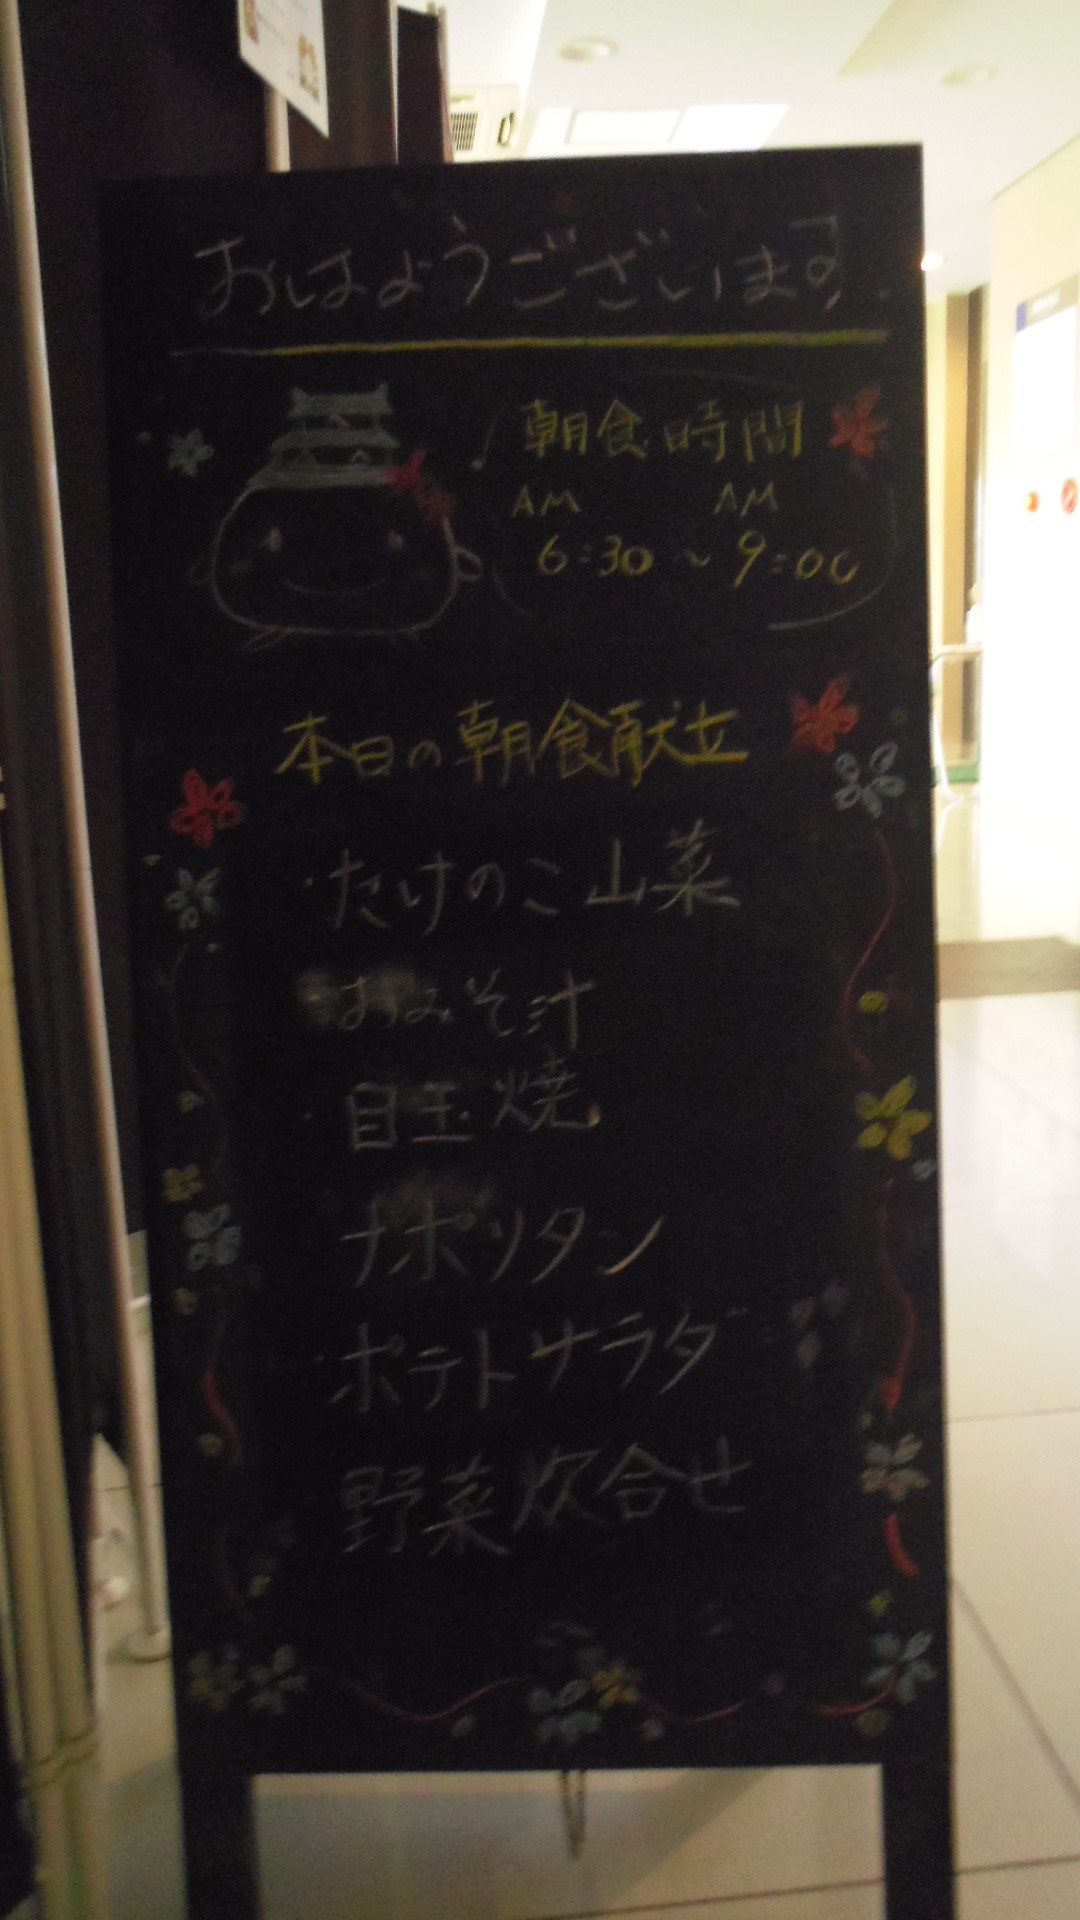 おはようございます.
朝食時間
AM AM
6:30 ~ 9:00
本日の朝食献立
・たけのこ山菜
おみそ汁
・目玉焼
ナポリタン
・ポテトサラダ
野菜炊合せ